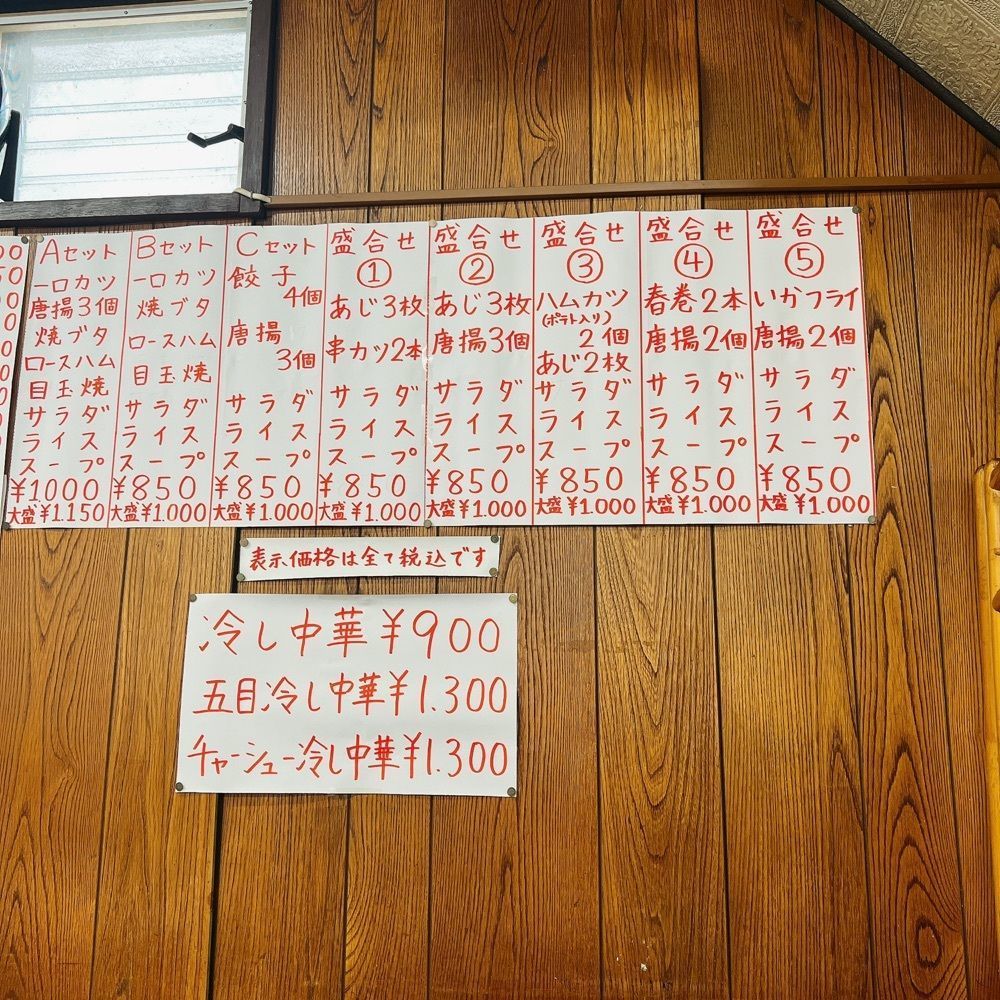 Aセット
一口カツ
唐揚3個
焼ブタ
ロースハム
目玉焼
サラダ
ライス
スープ
¥1000
大盛¥1.150
Bセット
一口カツ
焼ブタ
ロースハム
目玉焼
サラダ
ライス
スープ
¥850
大盛¥1.000
Cセット
餃子
4個
唐揚
3個
サラダ
ライス
スープ
¥850
大盛¥1.000
盛合せ
①
あじ3枚
串カツ2本
サラダ
ライス
スープ
¥850
大盛¥1.000
盛合せ
②
あじ3枚
唐揚3個
サラダ
ライス
スープ
¥850
大盛¥1.000
盛合せ
③
ハムカツ
(ポテト入り)
2個
あじ2枚
サラダ
ライス
スープ
¥850
大盛¥1.000
盛合せ
④
春巻2本
唐揚2個
サラダ
ライス
スープ
¥850
大盛¥1.000
盛合せ
⑤
いかフライ
唐揚2個
サラダ
ライス
スープ
¥850
大盛¥1.000
表示価格は全て税込です
冷し中華¥900
五目冷し中華¥1.300
チャーシュー冷し中華¥1.300